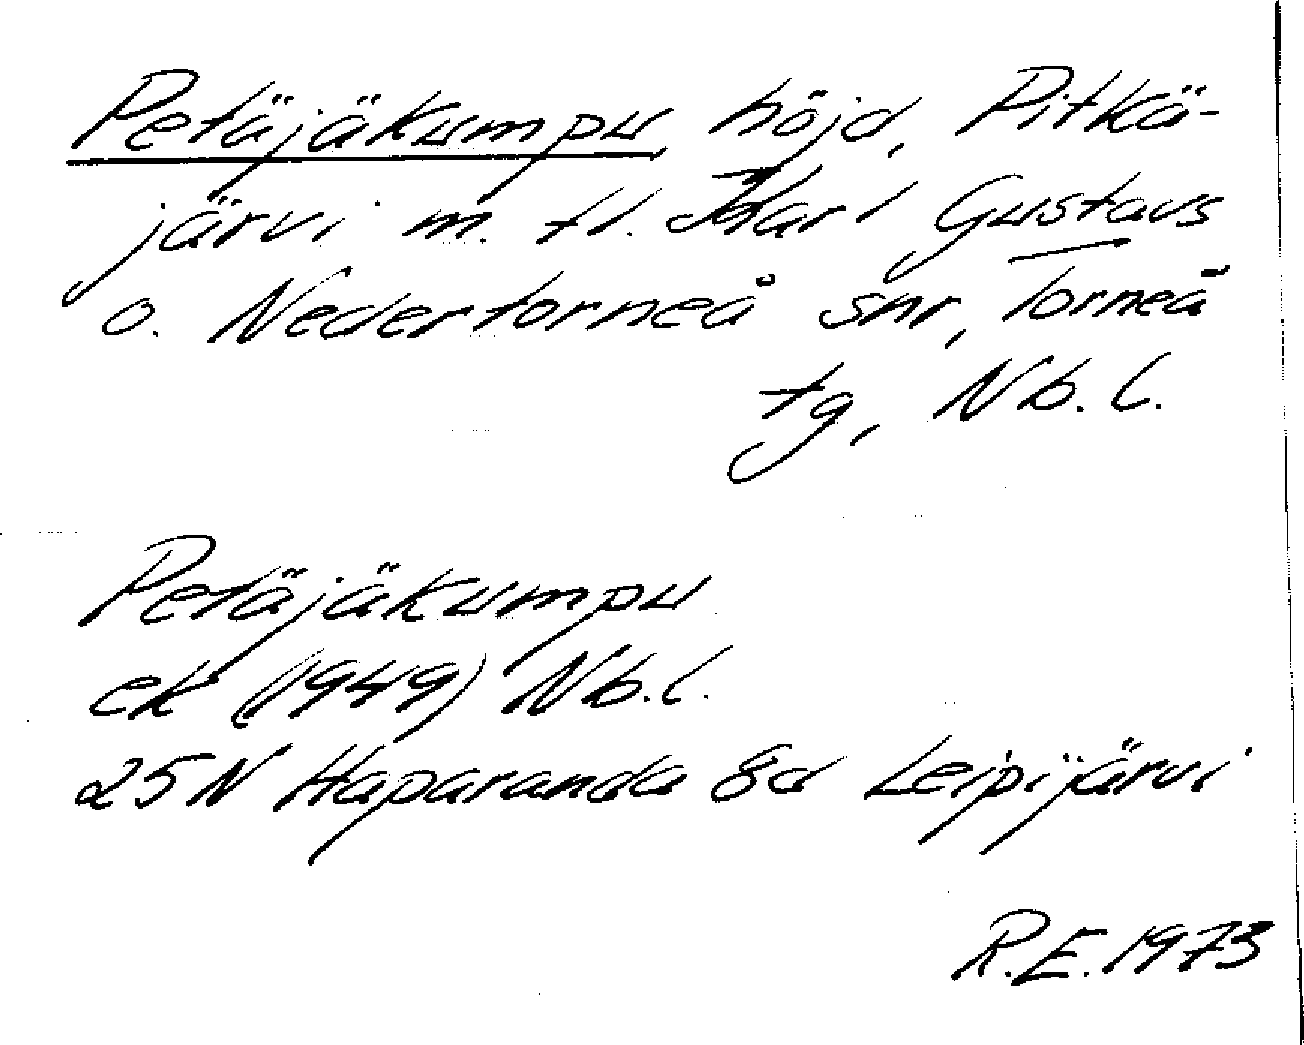 Petäjäkumpu, höjd, Pitkä-
järvi m. fl. Karl Gustavs
o. Nedertorneå snr, Torneå
tg, Nb. l.
Petäjäkumpu
ek (1949) Nb. l.
25N Haparanda 8d Leipijärvi
R.E. 1973